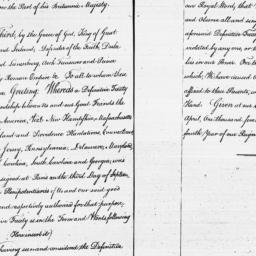 on the Part of his Britannic Majesty.
Third, by the Grace of God, King of Great
and Ireland, Defender of the Faith, Duke
and Lunenburg, Arch Treasurer and Prince
Roman Empire &c To all to whom these
Greeting. Whereas a Definitive Treaty
between Us and our Good Friends the
America, Viz. New Hampshire, Massachusetts
Island and Providence Plantations, Connecticut,
Jersey, Pennsylvania, Delaware, Maryland
Carolina, South Carolina and Georgia, was
signed at Paris on the third Day of Septem
Plenipotentiaries of Us and our said good
and respectively authorized for that purpose,
Treaty is in the Form and Words following
(Here insert it)
having seen and considered the Definitive
our Royal Word, that
and Observe all and
aforesaid Definitive Treaty
violated by any one, or
lies in our Power. For
which, We have caused
affixed to these Presents,
Hand. Given at our
April, One thousand
fourth Year of our Reign